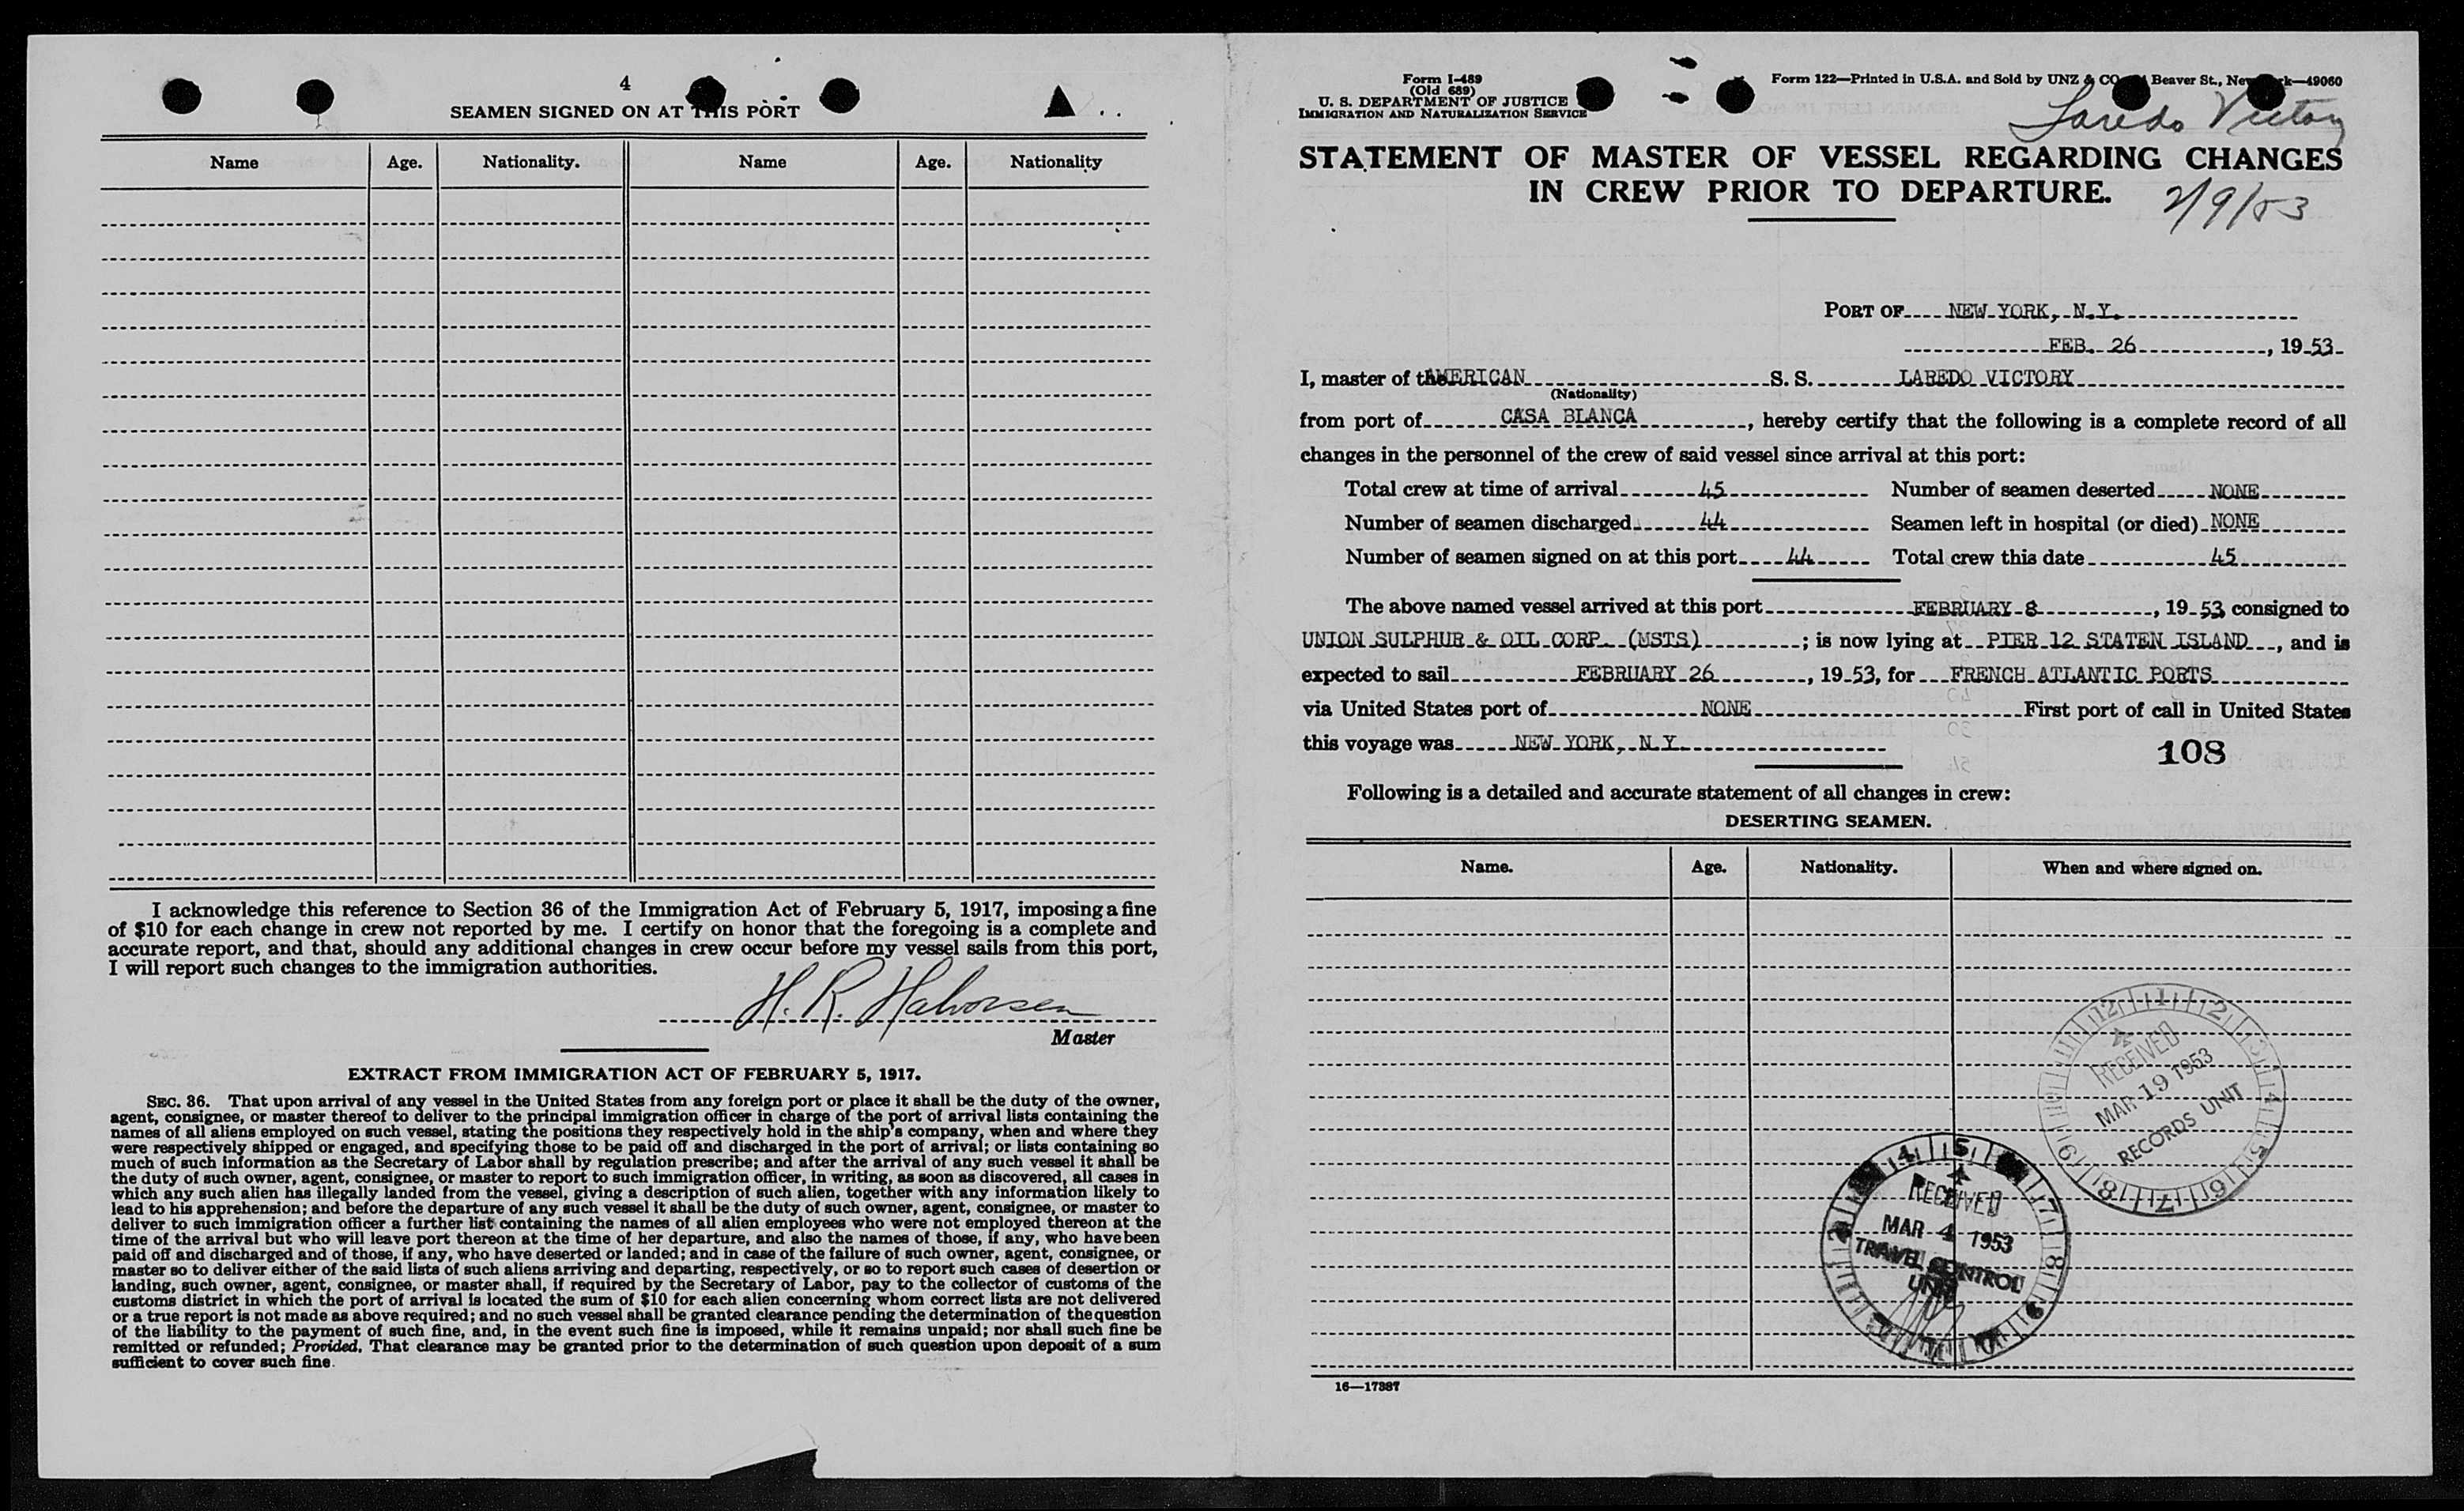 4
SEAMEN SIGNED ON AT THIS PORT
Name Age. Nationality. Name Age. Nationality
I acknowledge this reference to Section 36 of the Immigration Act of February 5, 1917, imposing a fine
of $10 for each change in crew not reported by me. I certify on honor that the foregoing is a complete and
accurate report, and that, should any additional changes in crew occur before my vessel sails from this port,
I will report such changes to the immigration authorities.
H. R. Halvorsen
Master
EXTRACT FROM IMMIGRATION ACT OF FEBRUARY 5, 1917.
SEC. 36. That upon arrival of any vessel in the United States from any foreign port or place it shall be the duty of the owner,
agent, consignee, or master thereof to deliver to the principal immigration officer in charge of the port of arrival lists containing the
names of all aliens employed on such vessel, stating the positions they respectively hold in the ship's company, when and where they
were respectively shipped or engaged, and specifying those to be paid off and discharged in the port of arrival; or lists containing so
much of such information as the Secretary of Labor shall by regulation prescribe; and after the arrival of any such vessel it shall be
the duty of such owner, agent, consignee, or master to report to such immigration officer, in writing, as soon as discovered, all cases in
which any such alien has illegally landed from the vessel, giving a description of such alien, together with any information likely to
lead to his apprehension; and before the departure of any such vessel it shall be the duty of such owner, agent, consignee, or master to
deliver to such immigration officer a further list containing the names of all alien employees who were not employed thereon at the
time of the arrival but who will leave port thereon at the time of her departure, and also the names of those, if any, who have been
paid off and discharged and of those, if any, who have deserted or landed; and in case of the failure of such owner, agent, consignee, or
master so to deliver either of the said lists of such aliens arriving and departing, respectively, or so to report such cases of desertion or
landing, such owner, agent, consignee, or master shall, if required by the Secretary of Labor, pay to the collector of customs of the
customs district in which the port of arrival is located the sum of $10 for each alien concerning whom correct lists are not delivered
or a true report is not made as above required; and no such vessel shall be granted clearance pending the determination of the question
of the liability to the payment of such fine, and, in the event such fine is imposed, while it remains unpaid; nor shall such fine be
remitted or refunded; Provided, That clearance may be granted prior to the determination of such question upon deposit of a sum
sufficient to cover such fine.
Form I-489
(Old 689)
U. S. DEPARTMENT OF JUSTICE
IMMIGRATION AND NATURALIZATION SERVICE
Form 122—Printed in U.S.A. and Sold by UNZ & CO. Beaver St., New York—49060
Laredo Victory
STATEMENT OF MASTER OF VESSEL REGARDING CHANGES
IN CREW PRIOR TO DEPARTURE.
2/9/53
PORT OF NEW YORK, N.Y.
FEB. 26, 1953
I, master of the AMERICAN S. S. LAREDO VICTORY
(Nationality)
from port of CASA BLANCA, hereby certify that the following is a complete record of all
changes in the personnel of the crew of said vessel since arrival at this port:
Total crew at time of arrival 45 Number of seamen deserted NONE
Number of seamen discharged 44 Seamen left in hospital (or died) NONE
Number of seamen signed on at this port 44 Total crew this date 45
The above named vessel arrived at this port FEBRUARY 8, 1953 consigned to
UNION SULPHUR & OIL CORP. (MSTS); is now lying at PIER 12 STATEN ISLAND, and is
expected to sail FEBRUARY 26, 1953, for FRENCH ATLANTIC PORTS
via United States port of NONE First port of call in United States
this voyage was NEW YORK, N.Y.
108
Following is a detailed and accurate statement of all changes in crew:
DESERTING SEAMEN.
Name. Age. Nationality. When and where signed on.
RECEIVED
MAR 19 1953
RECORDS UNIT
RECEIVED
MAR 4 1953
TRAVEL CONTROL
UNIT
16—17387